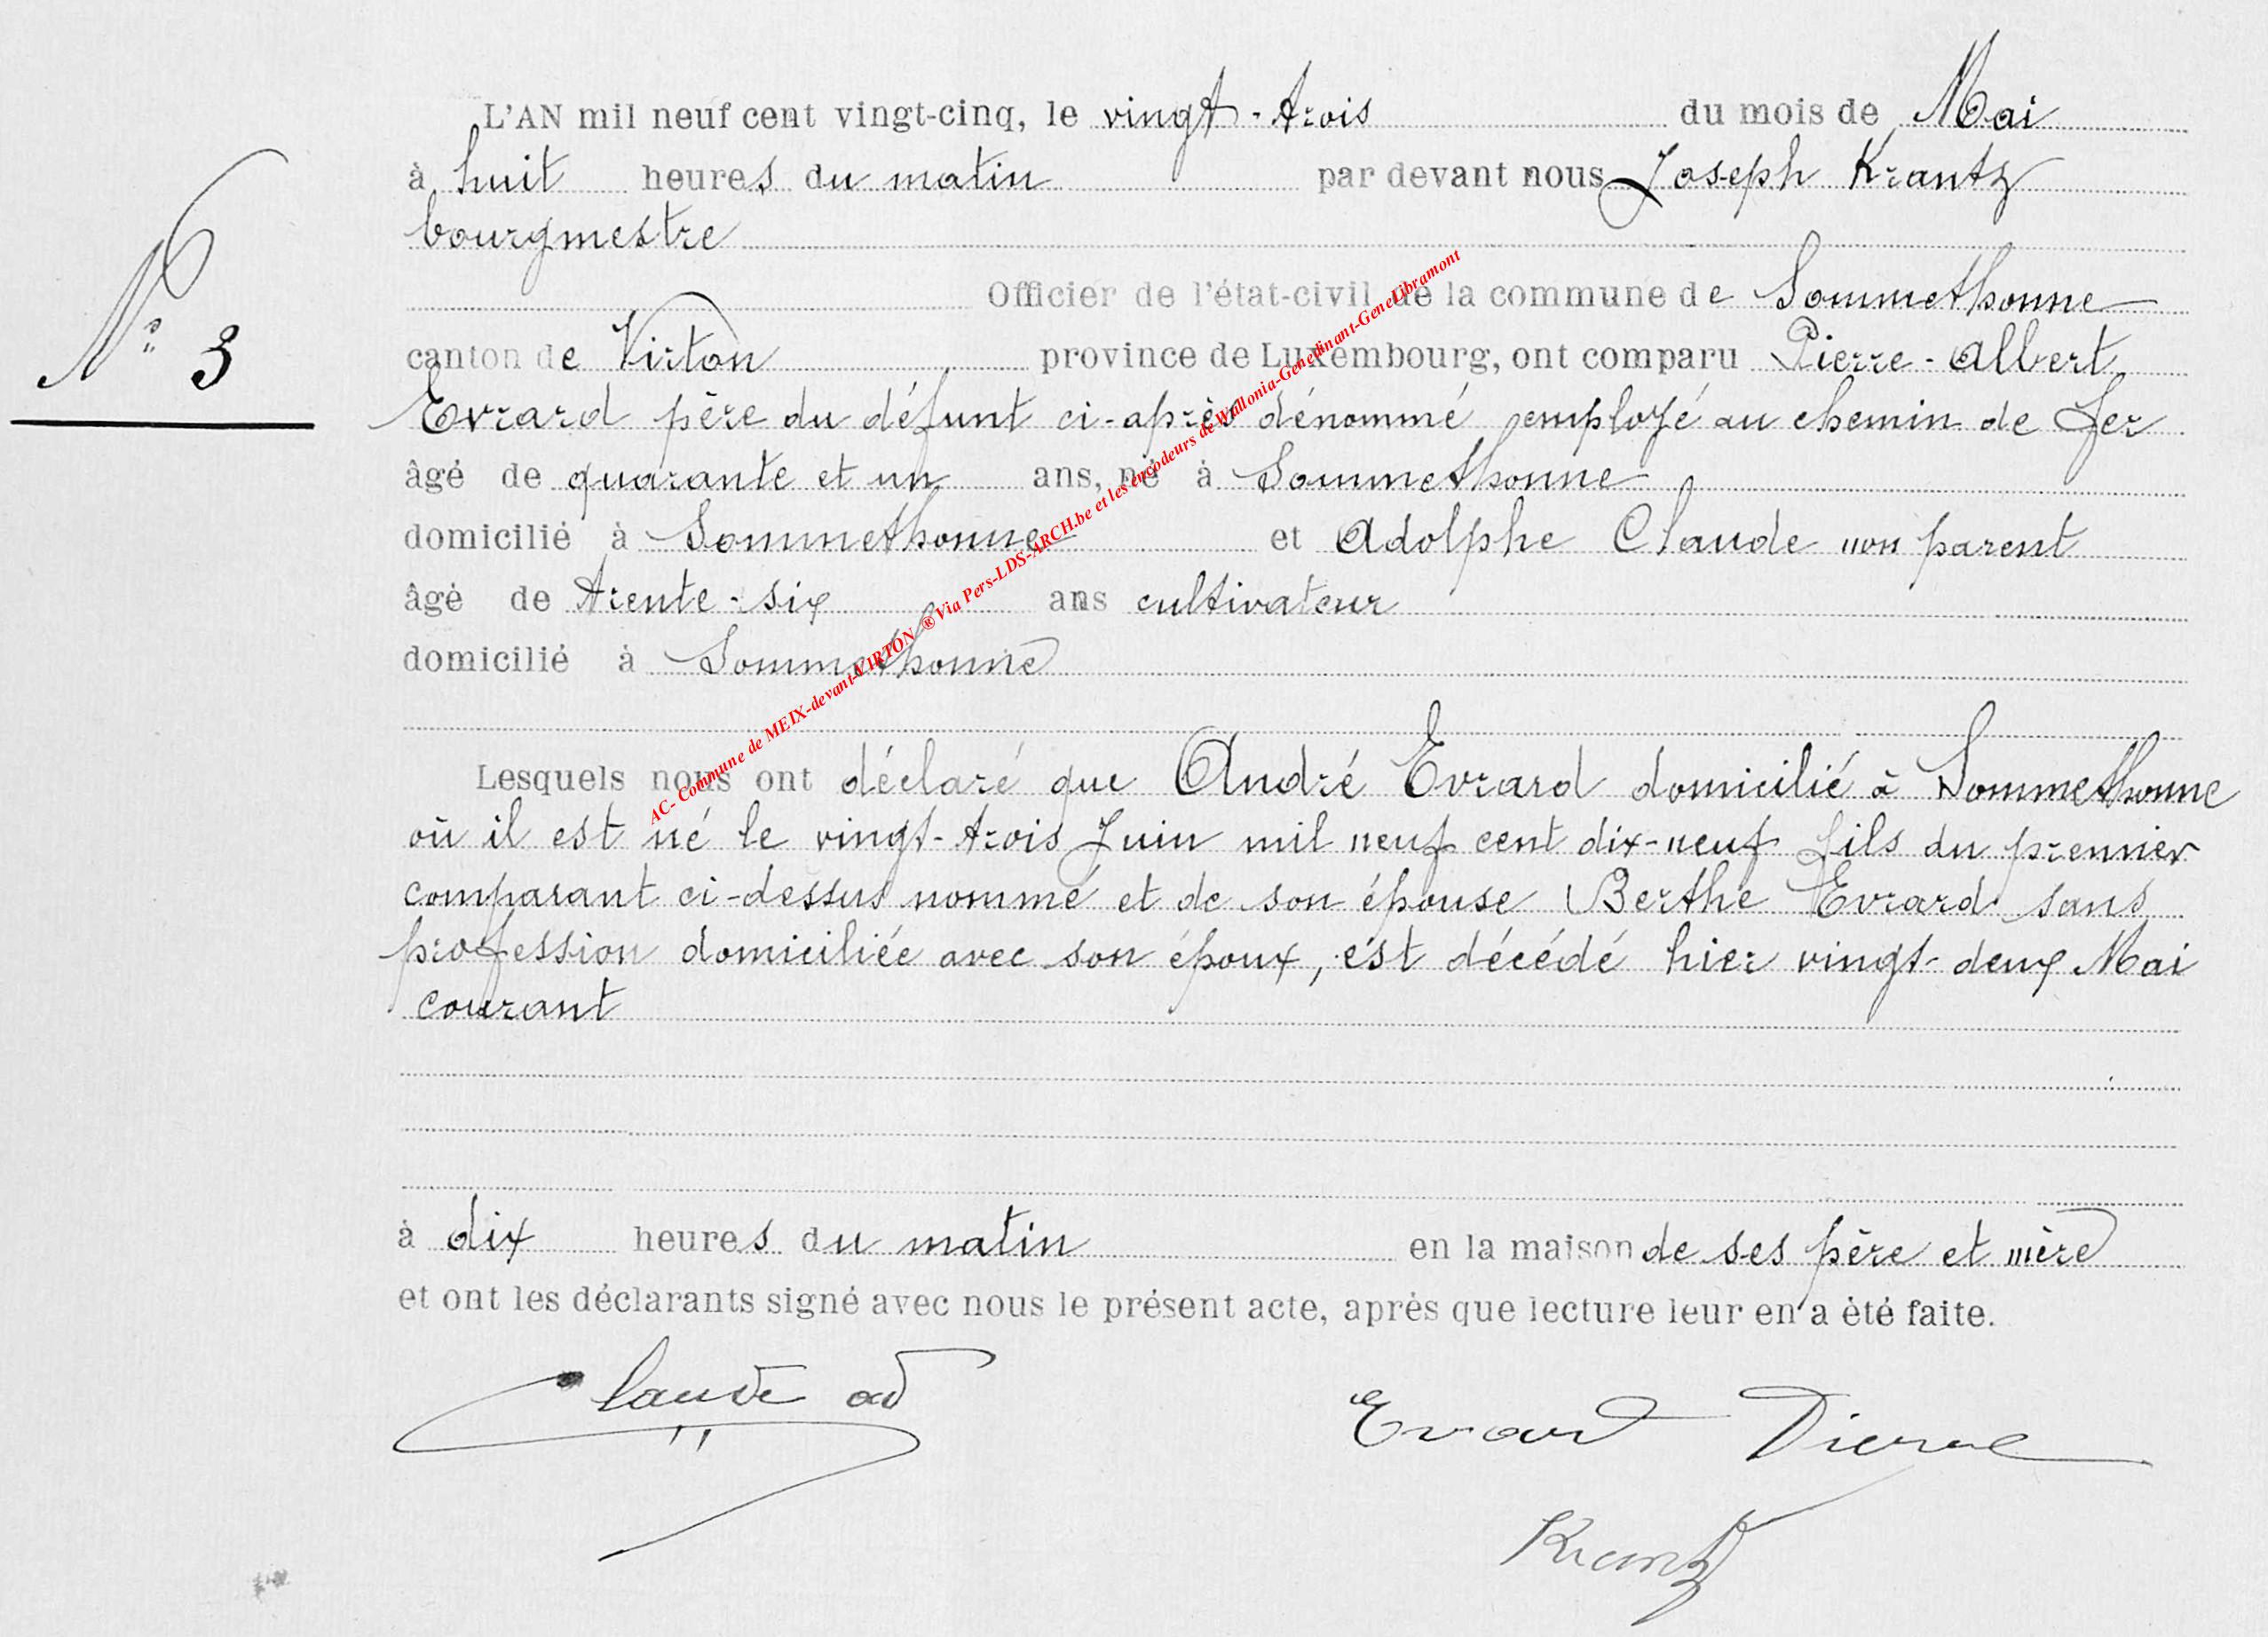 L'AN mil neuf cent vingt-cinq, le vingt-trois du mois de Mai
à huit heures du matin par devant nous Joseph Krantz
bourgmestre
Officier de l'état-civil de la commune de Sommethonne
N° 3
canton de Virton province de Luxembourg, ont comparu Pierre-Albert
Evrard père du défunt ci-après dénommé employé au chemin de fer
âgé de quarante et un ans, né à Sommethonne
domicilié à Sommethonne et Adolphe Claude non parent
âgé de trente-six ans cultivateur
domicilié à Sommethonne
AC- Commune de MEIX-devant-VIRTON ® Via Pers-LDS-ARCH.be et les encodeurs de Wallonia-Genedinant-GeneLibramont
Lesquels nous ont déclaré que André Evrard domicilié à Sommethonne
où il est né le vingt-trois Juin mil neuf cent dix-neuf fils du premier
comparant ci-dessus nommé et de son épouse Berthe Evrard sans
profession domiciliée avec son époux, est décédé hier vingt-deux Mai
courant
à dix heures du matin en la maison de ses père et mère
et ont les déclarants signé avec nous le présent acte, après que lecture leur en a été faite.
Claude ad
Evrard Pierre
Krantz